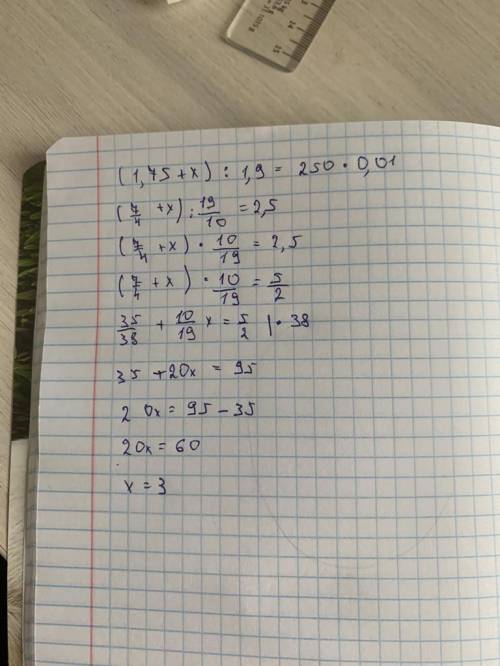 (1,75+x) : 1,9 = 250 · 0,01
(7/4 + x) : 19/10 = 2,5
(7/4 + x) · 10/19 = 2,5
(7/4 + x) · 10/19 = 5/2
35/38 + 10/19 x = 5/2 | · 38
35 + 20x = 95
20x = 95 - 35
20x = 60
x = 3